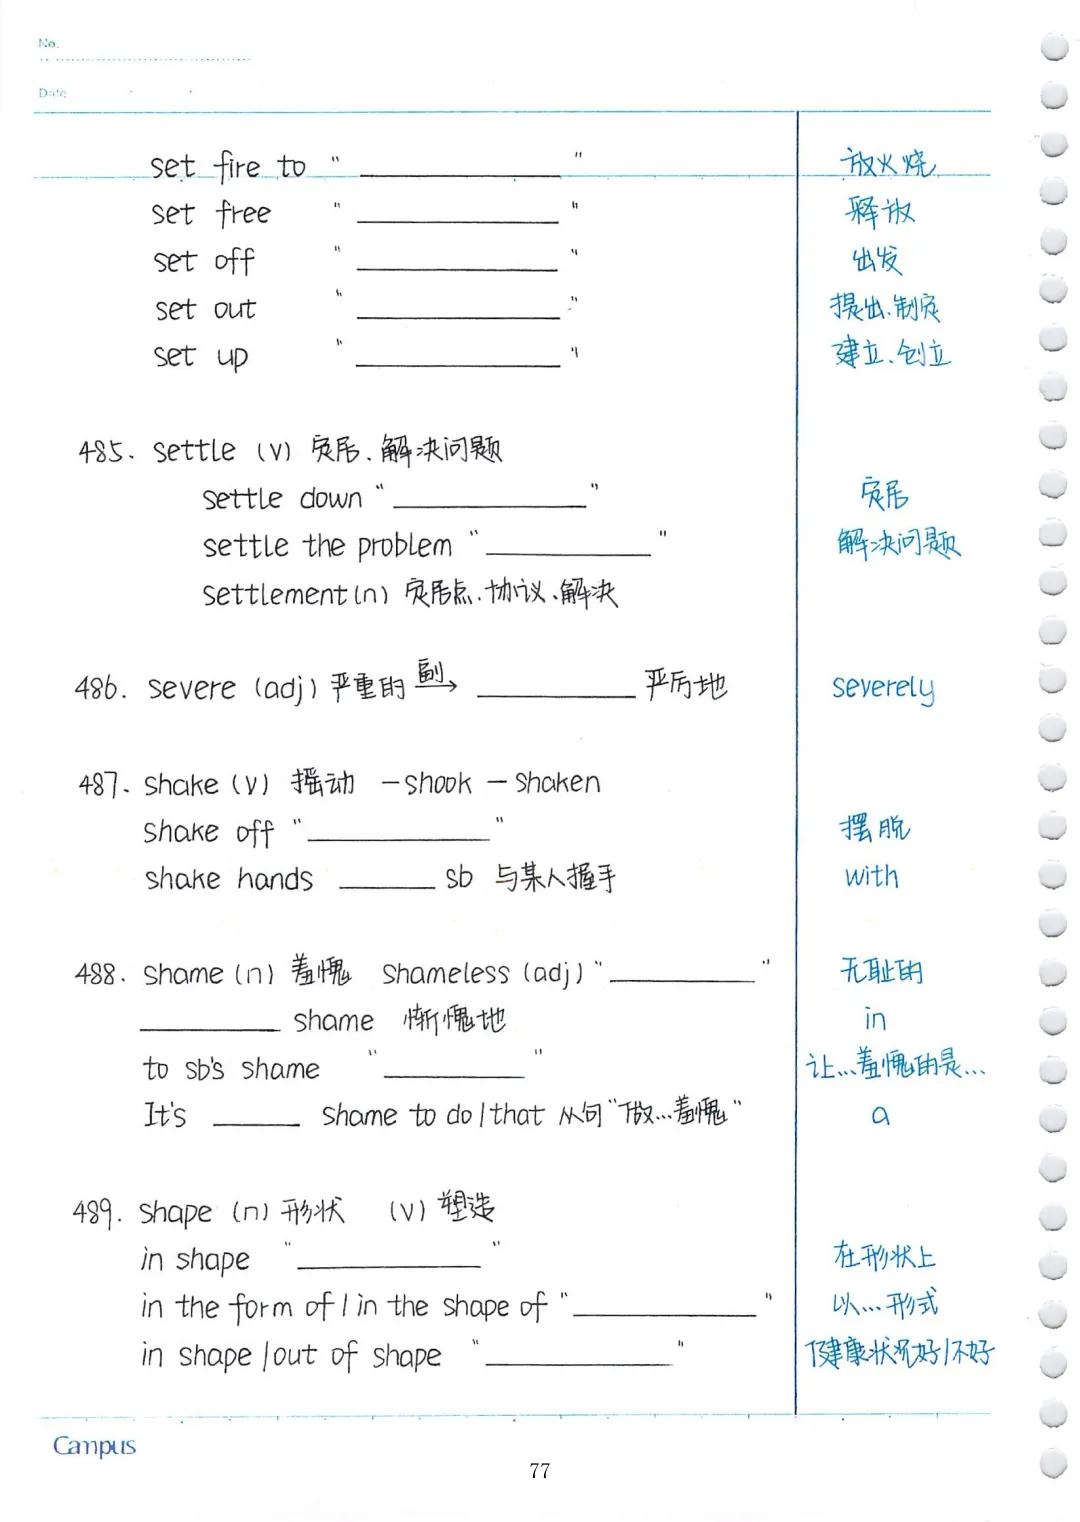 No.
Date
set fire to " ____________ " 放火烧
set free " ____________ " 释放
set off " ____________ " 出发
set out " ____________ " 提出、制定
set up " ____________ " 建立、创立
485. settle (v) 定居、解决问题
settle down " ____________ " 定居
settle the problem " __________ " 解决问题
settlement (n) 定居点、协议、解决
486. severe (adj) 严重的 副→ __________ 严厉地 severely
487. shake (v) 摇动 - shook - shaken
shake off " ____________ " 摆脱
shake hands ______ sb 与某人握手 with
488. shame (n) 羞愧 shameless (adj) " _________ " 无耻的
_________ shame 惭愧地 in
to sb's shame " _________ " 让...羞愧的是...
It's _____ shame to do / that 从句 "做...羞愧" a
489. shape (n) 形状 (v) 塑造
in shape " ____________ " 在形状上
in the form of / in the shape of " ____________ " 以...形式
in shape / out of shape " ____________ " 健康状况好/不好
Campus
77